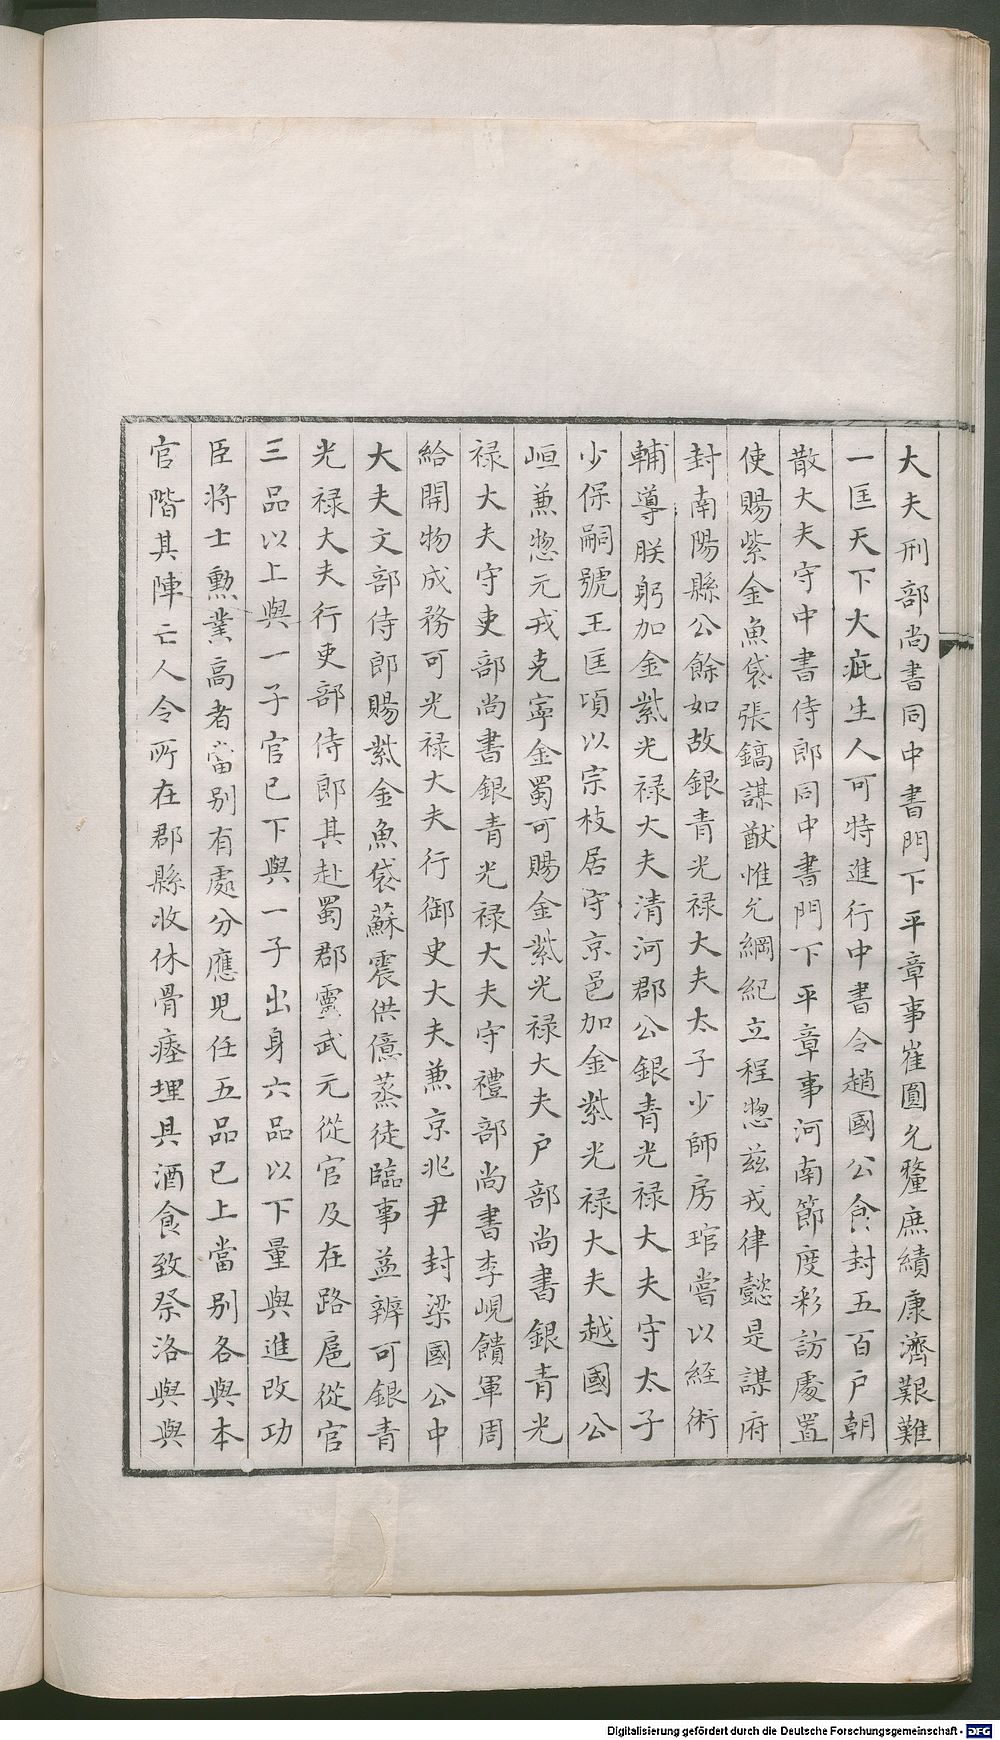 大夫刑部尚書同中書門下平章事崔圓允釐庶績康濟艱難
一匡天下大疵生人可特進行中書令趙國公食封五百戶朝
散大夫守中書侍郎同中書門下平章事河南節度彩訪處置
使賜紫金魚袋張鎬謀猷惟允綱紀立程惣兹戎律懿是謀府
封南陽縣公餘如故銀青光禄大夫太子少師房琯嘗以経術
輔導朕躬加金紫光禄大夫清河郡公銀青光禄大夫守太子
少保嗣號王匡頃以宗枝居守京邑加金紫光禄大夫越國公
峘兼惣元戎克寧金蜀可賜金紫光禄大夫戶部尚書銀青光
禄大夫守吏部尚書銀青光禄大夫守禮部尚書李峴饋軍周
給開物成務可光禄大夫行御史大夫兼京兆尹封梁國公中
大夫文部侍郎賜紫金魚袋蘇震供億蒸徒臨事益辨可銀青
光禄大夫行吏部侍郎其赴蜀郡靈武元從官及在路扈從官
三品以上與一子官已下與一子出身六品以下量與進改功
臣將士勲業高者當别有處分應児任五品已上當别各與本
官階其陣亡人令所在郡縣收休骨瘞埋具酒食致祭洛與與
Digitalisierung gefördert durch die Deutsche Forschungsgemeinschaft - DFG